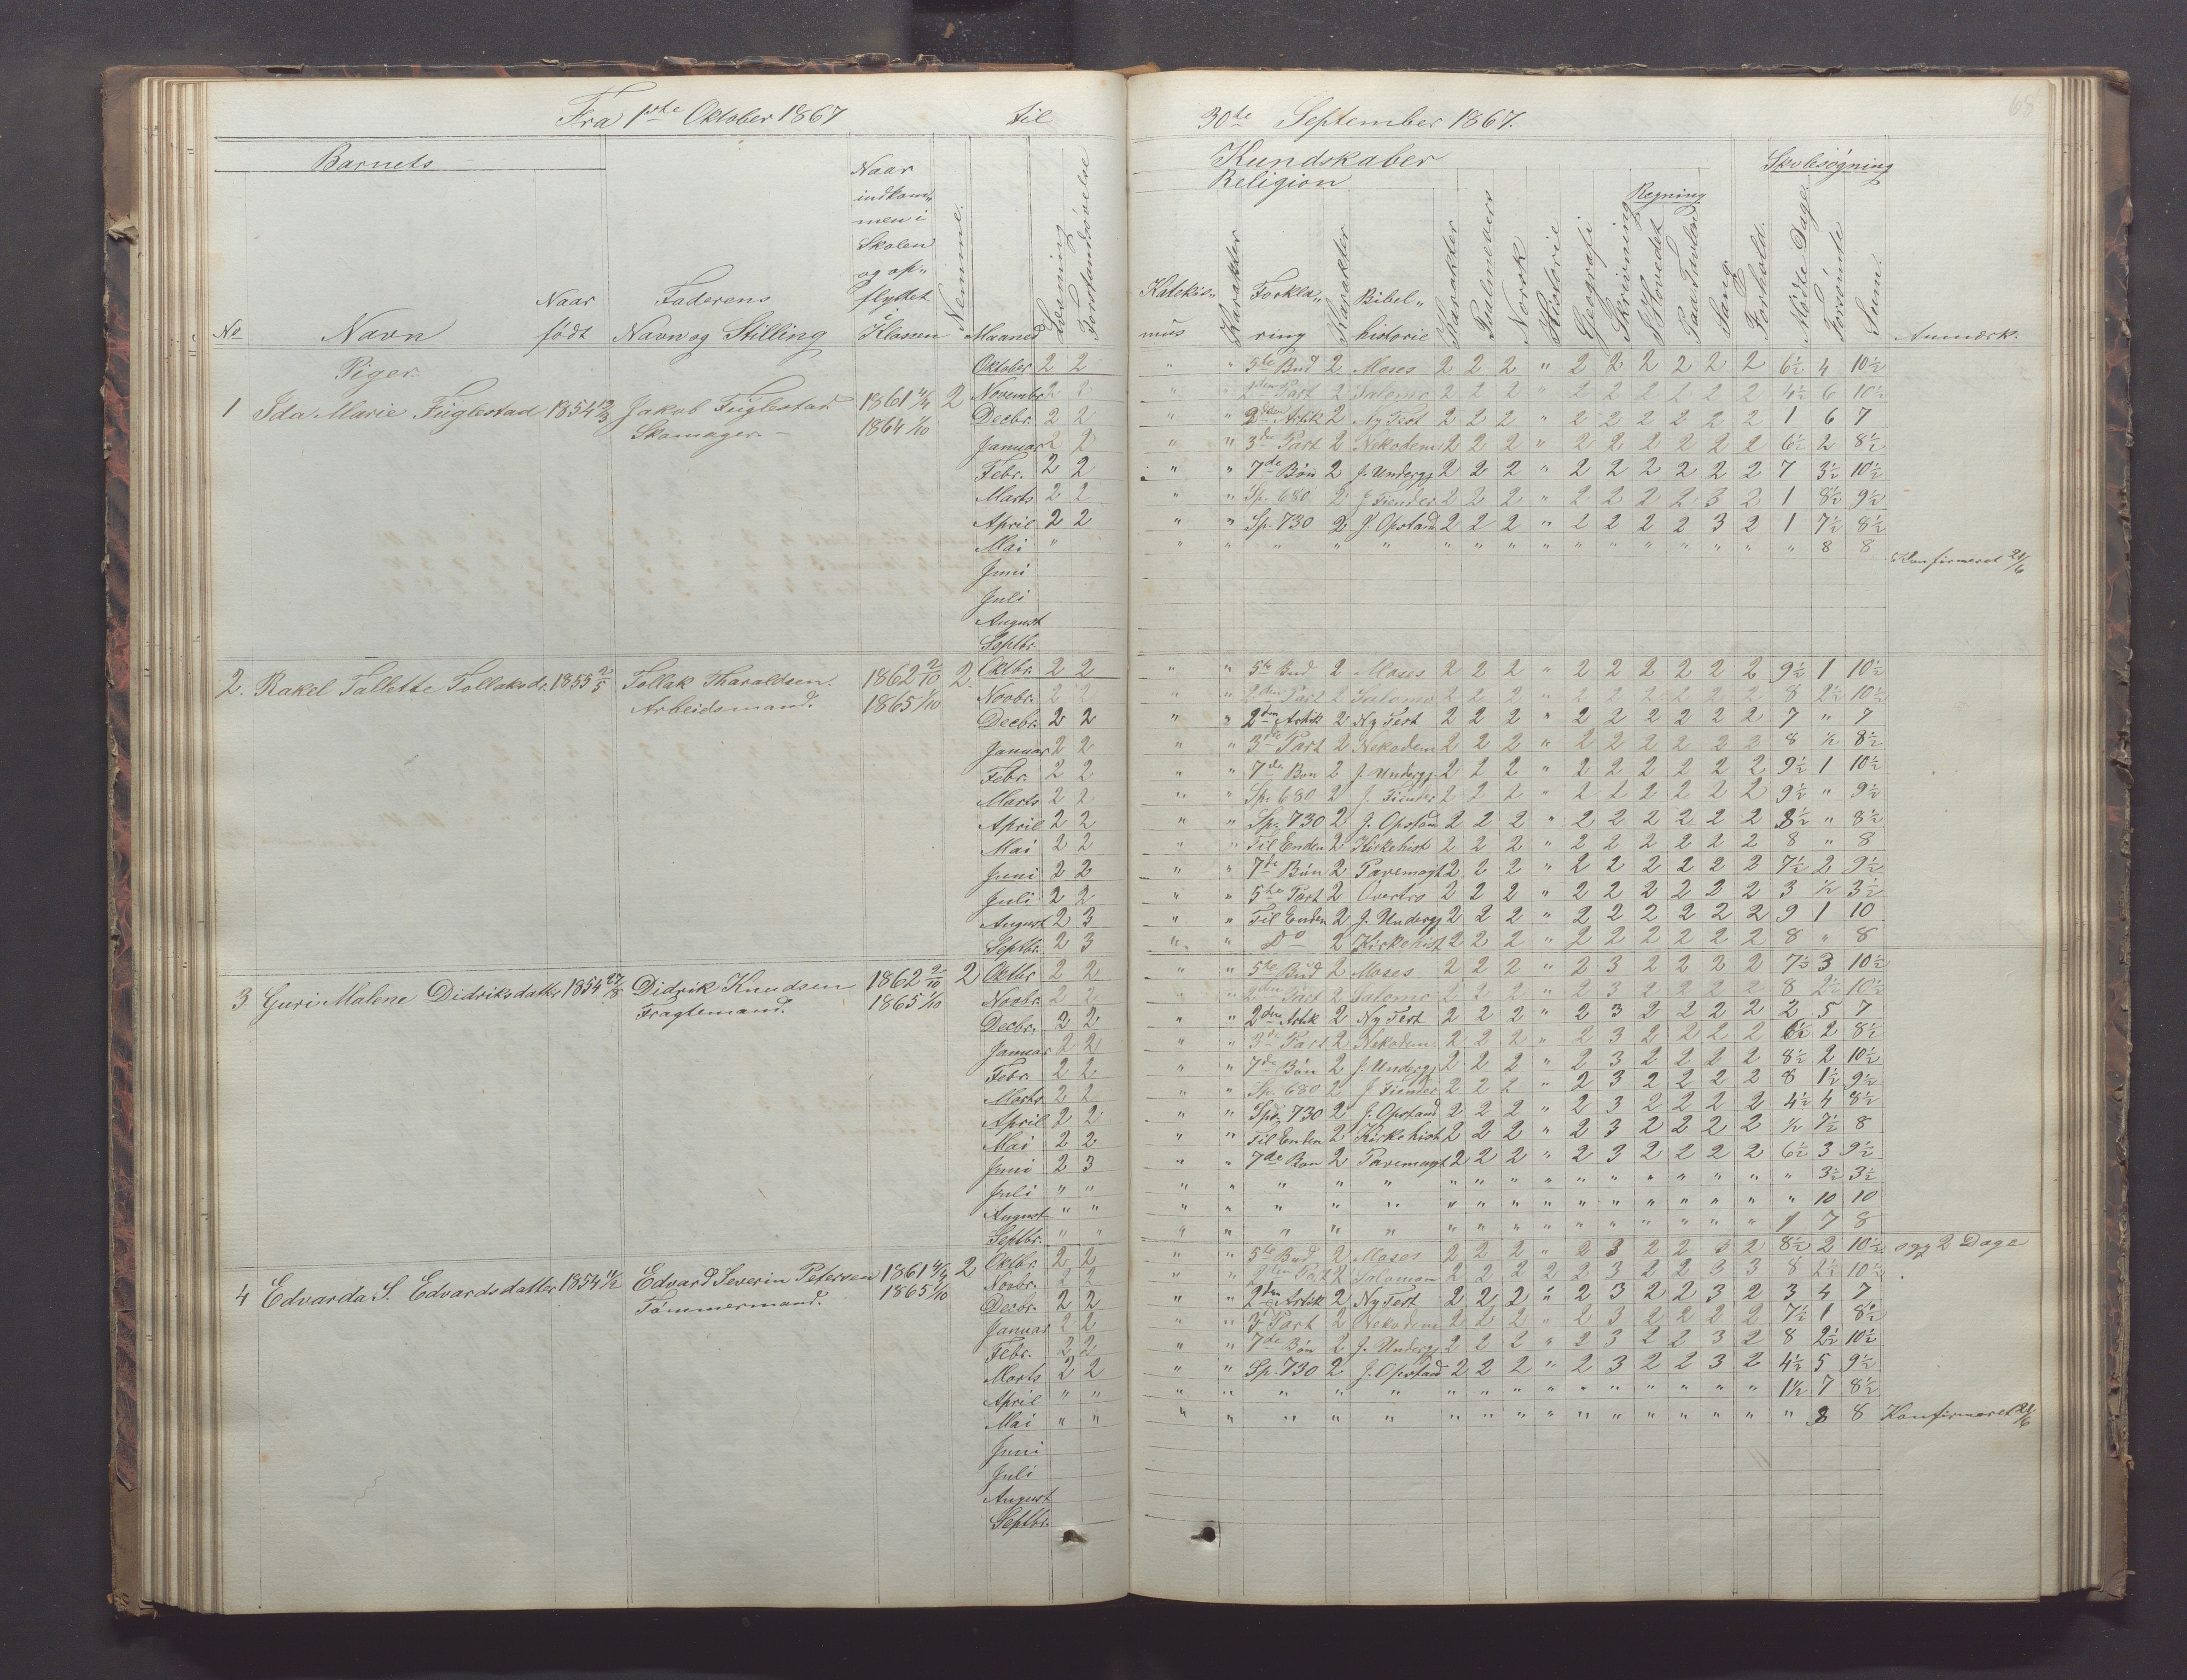 Fra 1ste Oktober 1867 til 30te September 1867.
68
Barnets
Kundskaber
Skolesøgning
Religion
Regning
No
Navn
Naar født
Faderens Navn og Stilling
Naar indkommen i Skolen og opflyttet i Klassen
Nemme.
Maaned
Læsning
Forstandsøvelse
Katekismus
Karakter
Forklaring
Karakter
Bibelhistorie
Karakter
Psalmevers
Norsk
Historie
Geografi
Skrivning
I Hovedet
Paa Tavlen
Sang
Forhold.
Møde Dage
Forsømte
Sum.
Anmærk.
Piger.
1 Ida Marie Fuglestad 1854 Jakob Fuglestad Skomager. 1861 1864 1/10 2
Oktober 2 2 " " 5te Bud 2 Moses 2 2 2 " 2 2 2 2 2 2 6½ 4 10½
Novembr 2 2 " " 2den Part 2 Salomo 2 2 2 " 2 2 2 2 2 2 4½ 6 10½
Decbr. 2 2 " " 2den Artik 2 Ny Test 2 2 2 " 2 2 2 2 2 2 1 6 7
Januar 2 2 " " 3die Part 2 Nekodem 2 2 2 " 2 2 2 2 2 2 6½ 2 8½
Febr. 2 2 " " 7de Bøn 2 J. Undergj 2 2 2 " 2 2 2 2 2 2 7 3½ 10½
Marts 2 2 " " Sp. 680 2 J. Fiender 2 2 2 " 2 2 2 2 3 2 1 8½ 9½
April 2 2 " " Sp. 730 2 J. Opstand 2 2 2 " 2 2 2 2 3 2 1 7½ 8½
Mai " " " " " " " " " " " " " " " " " " 8 8 Konfirmeret 21/6
Juni
Juli
August
Septbr.
2. Rakel Tallette Tollaksdr. 1855 2/5 Tollak Tharaldsen. Arbeidsmand. 1862 2/10 1865 1/10 2.
Oktbr. 2 2 " " 5te Bud 2 Moses 2 2 2 " 2 2 2 2 2 2 9½ 1 10½
Novbr. 2 2 " " 2den Part 2 Salomo 2 2 2 " 2 2 2 2 2 2 8 2½ 10½
Decbr. 2 2 " " 2den Artik 2 Ny Test 2 2 2 " 2 2 2 2 2 2 7 " 7
Januar 2 2 " " 3die Part 2 Nekodem 2 2 2 " 2 2 2 2 2 2 8 ½ 8½
Febr. 2 2 " " 7de Bøn 2 J. Undergj. 2 2 2 " 2 2 2 2 2 2 9½ 1 10½
Marts 2 2 " " Sp. 680 2 J. Fiender 2 2 2 " 2 2 2 2 2 2 9½ " 9½
April 2 2 " " Sp. 730 2 J. Opstand 2 2 2 " 2 2 2 2 2 2 8½ " 8½
Mai 2 2 " " Til Enden 2 Kirkehist 2 2 2 " 2 2 2 2 2 2 8 " 8
Juni 2 2 " " 7de Bøn 2 Pavemagt 2 2 2 " 2 2 2 2 2 2 7½ 2 9½
Juli 2 2 " " 5te Part 2 Overtro 2 2 2 " 2 2 2 2 2 2 3 ½ 3½
August 2 3 " " Til Enden 2 J. Undergj 2 2 2 " 2 2 2 2 2 2 9 1 10
Septbr. 2 3 " " Do 2 Kirkehist 2 2 2 " 2 2 2 2 2 2 8 " 8
3 Guri Malene Didriksdatter 1854 27/8 Didrik Knudsen Fragtemand. 1862 2/10 1865 1/10 2
Oktbr 2 2 " " 5te Bud 2 Moses 2 2 2 " 2 3 2 2 2 2 7½ 3 10½
Novbr. 2 2 " " 2den Part 2 Salomo 2 2 2 " 2 3 2 2 2 2 8 2½ 10½
Decbr. 2 2 " " 2den Artik 2 Ny Test 2 2 2 " 2 3 2 2 2 2 2 5 7
Januar 2 2 " " 3die Part 2 Nekodem. 2 2 2 " 2 3 2 2 2 2 6½ 2 8½
Febr. 2 2 " " 7de Bøn 2 J. Undergj 2 2 2 " 2 3 2 2 2 2 8½ 2 10½
Marts 2 2 " " Sp. 680 2 J Fiender 2 2 2 " 2 3 2 2 2 2 8 1½ 9½
April 2 2 " " Sp. 730 2 J. Opstand 2 2 2 " 2 3 2 2 2 2 4½ 4 8½
Mai 2 2 " " Til Enden 2 Kirkehist 2 2 2 " 2 3 2 2 2 2 ½ 7½ 8
Juni 2 3 " " 7de Bøn 2 Pavemagt 2 2 2 " 2 3 2 2 2 2 6½ 3 9½
Juli " " " " " " " " " " " " " " " " " " " 3½ 3½
August " " " " " " " " " " " " " " " " " " " 10 10
Septbr. " " " " " " " " " " " " " " " " " " 1 7 8
4 Edvarda S. Edvardsdatter 1854 11/2 Edvard Severin Petersen Tømmermand. 1861 1865 1/10 2
Oktbr. 2 2 " " 5te Bud 2 Moses 2 2 2 " 2 3 2 2 3 2 8½ 2 10½ 2 Dage
Novbr. 2 2 " " 2den Part 2 Salomon 2 2 2 2 2 3 2 2 3 3 8 2½ 10½
Decbr. 2 2 " " 2den Artik 2 Ny Test 2 2 2 " 2 3 2 2 3 2 3 4 7
Januar 2 2 " " 3 Part 2 Nekodem 2 2 2 " 2 3 2 2 2 2 7½ 1 8½
Febr. 2 2 " " 7de Bøn 2 J. Undergj 2 2 2 " 2 3 2 2 3 2 8 2½ 10½
Marts 2 2 " " Sp. 730 2 J. Opstand 2 2 2 " 2 3 2 2 3 2 4½ 5 9½
April " " " " " " " " " " " " " " " " " " 1½ 7 8½
Mai " " " " " " " " " " " " " " " " " " " 8 8 Konfirmeret 21/6
Juni
Juli
August
Septbr.